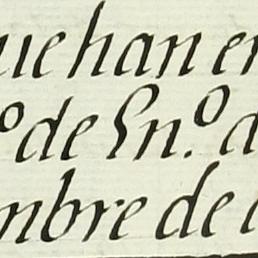 ue han en
º de En.º d
mbre de